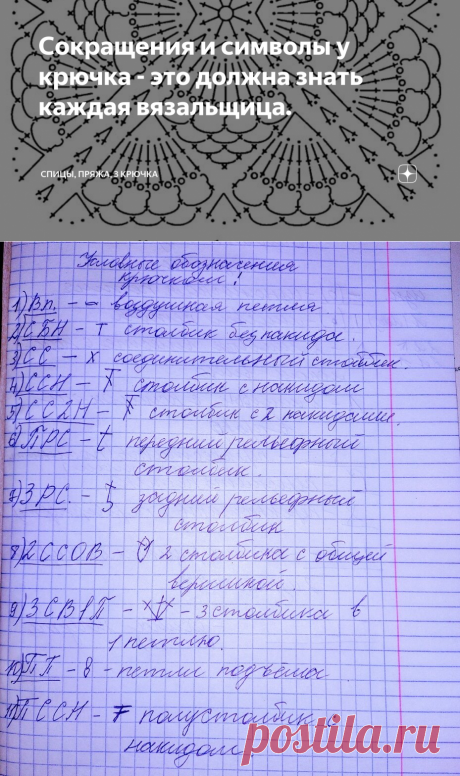 Сокращения и символы у
крючка - это должна знать
каждая вязальщица.
СПИЦЫ, ПРЯЖА, 3 КРЮЧКА
Условные обозначения
крючком!
1) Вп. - – воздушная петля
2) СБН - т столбик без накида.
3) СС - х соединительный столбик.
4) ССН - Ŧ столбик с накидом
5) СС2Н - Ŧ столбик с 2 накидами.
6) ПРС - t передний рельефный
столбик.
7) ЗРС. - задний рельефный
столбик
8) 2ССОВ - 2 столбика с общей
вершиной.
9) 3СВ1П - - 3 столбика в
1 петлю.
10) ПП - 8 - петли подъёма
11) ПССН - Ŧ полустолбик с
накидом.
postila.ru